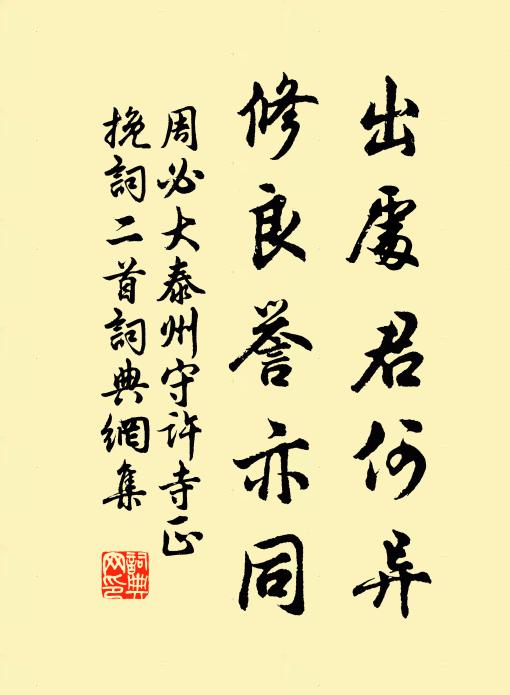 出處君何异
修良誉亦同
周必大泰州守許寺正
挽詞二首詞典網集
詞典網印